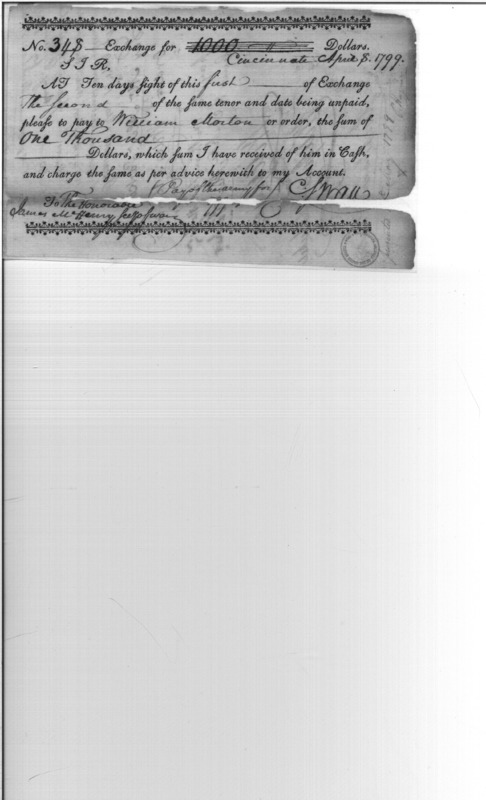 No. 348 Exchange for 1000 Dollars.
Cincinnati April 8. 1799.
SIR,
AT Ten days ſight of this first of Exchange
The Second of the ſame tenor and date being unpaid,
pleaſe to pay to William Morton or order, the ſum of
One Thousand
Dollars, which ſum I have received of him in Caſh,
and charge the ſame as per advice herewith to my Account.
C Swan
To The Honorable
James McHenry